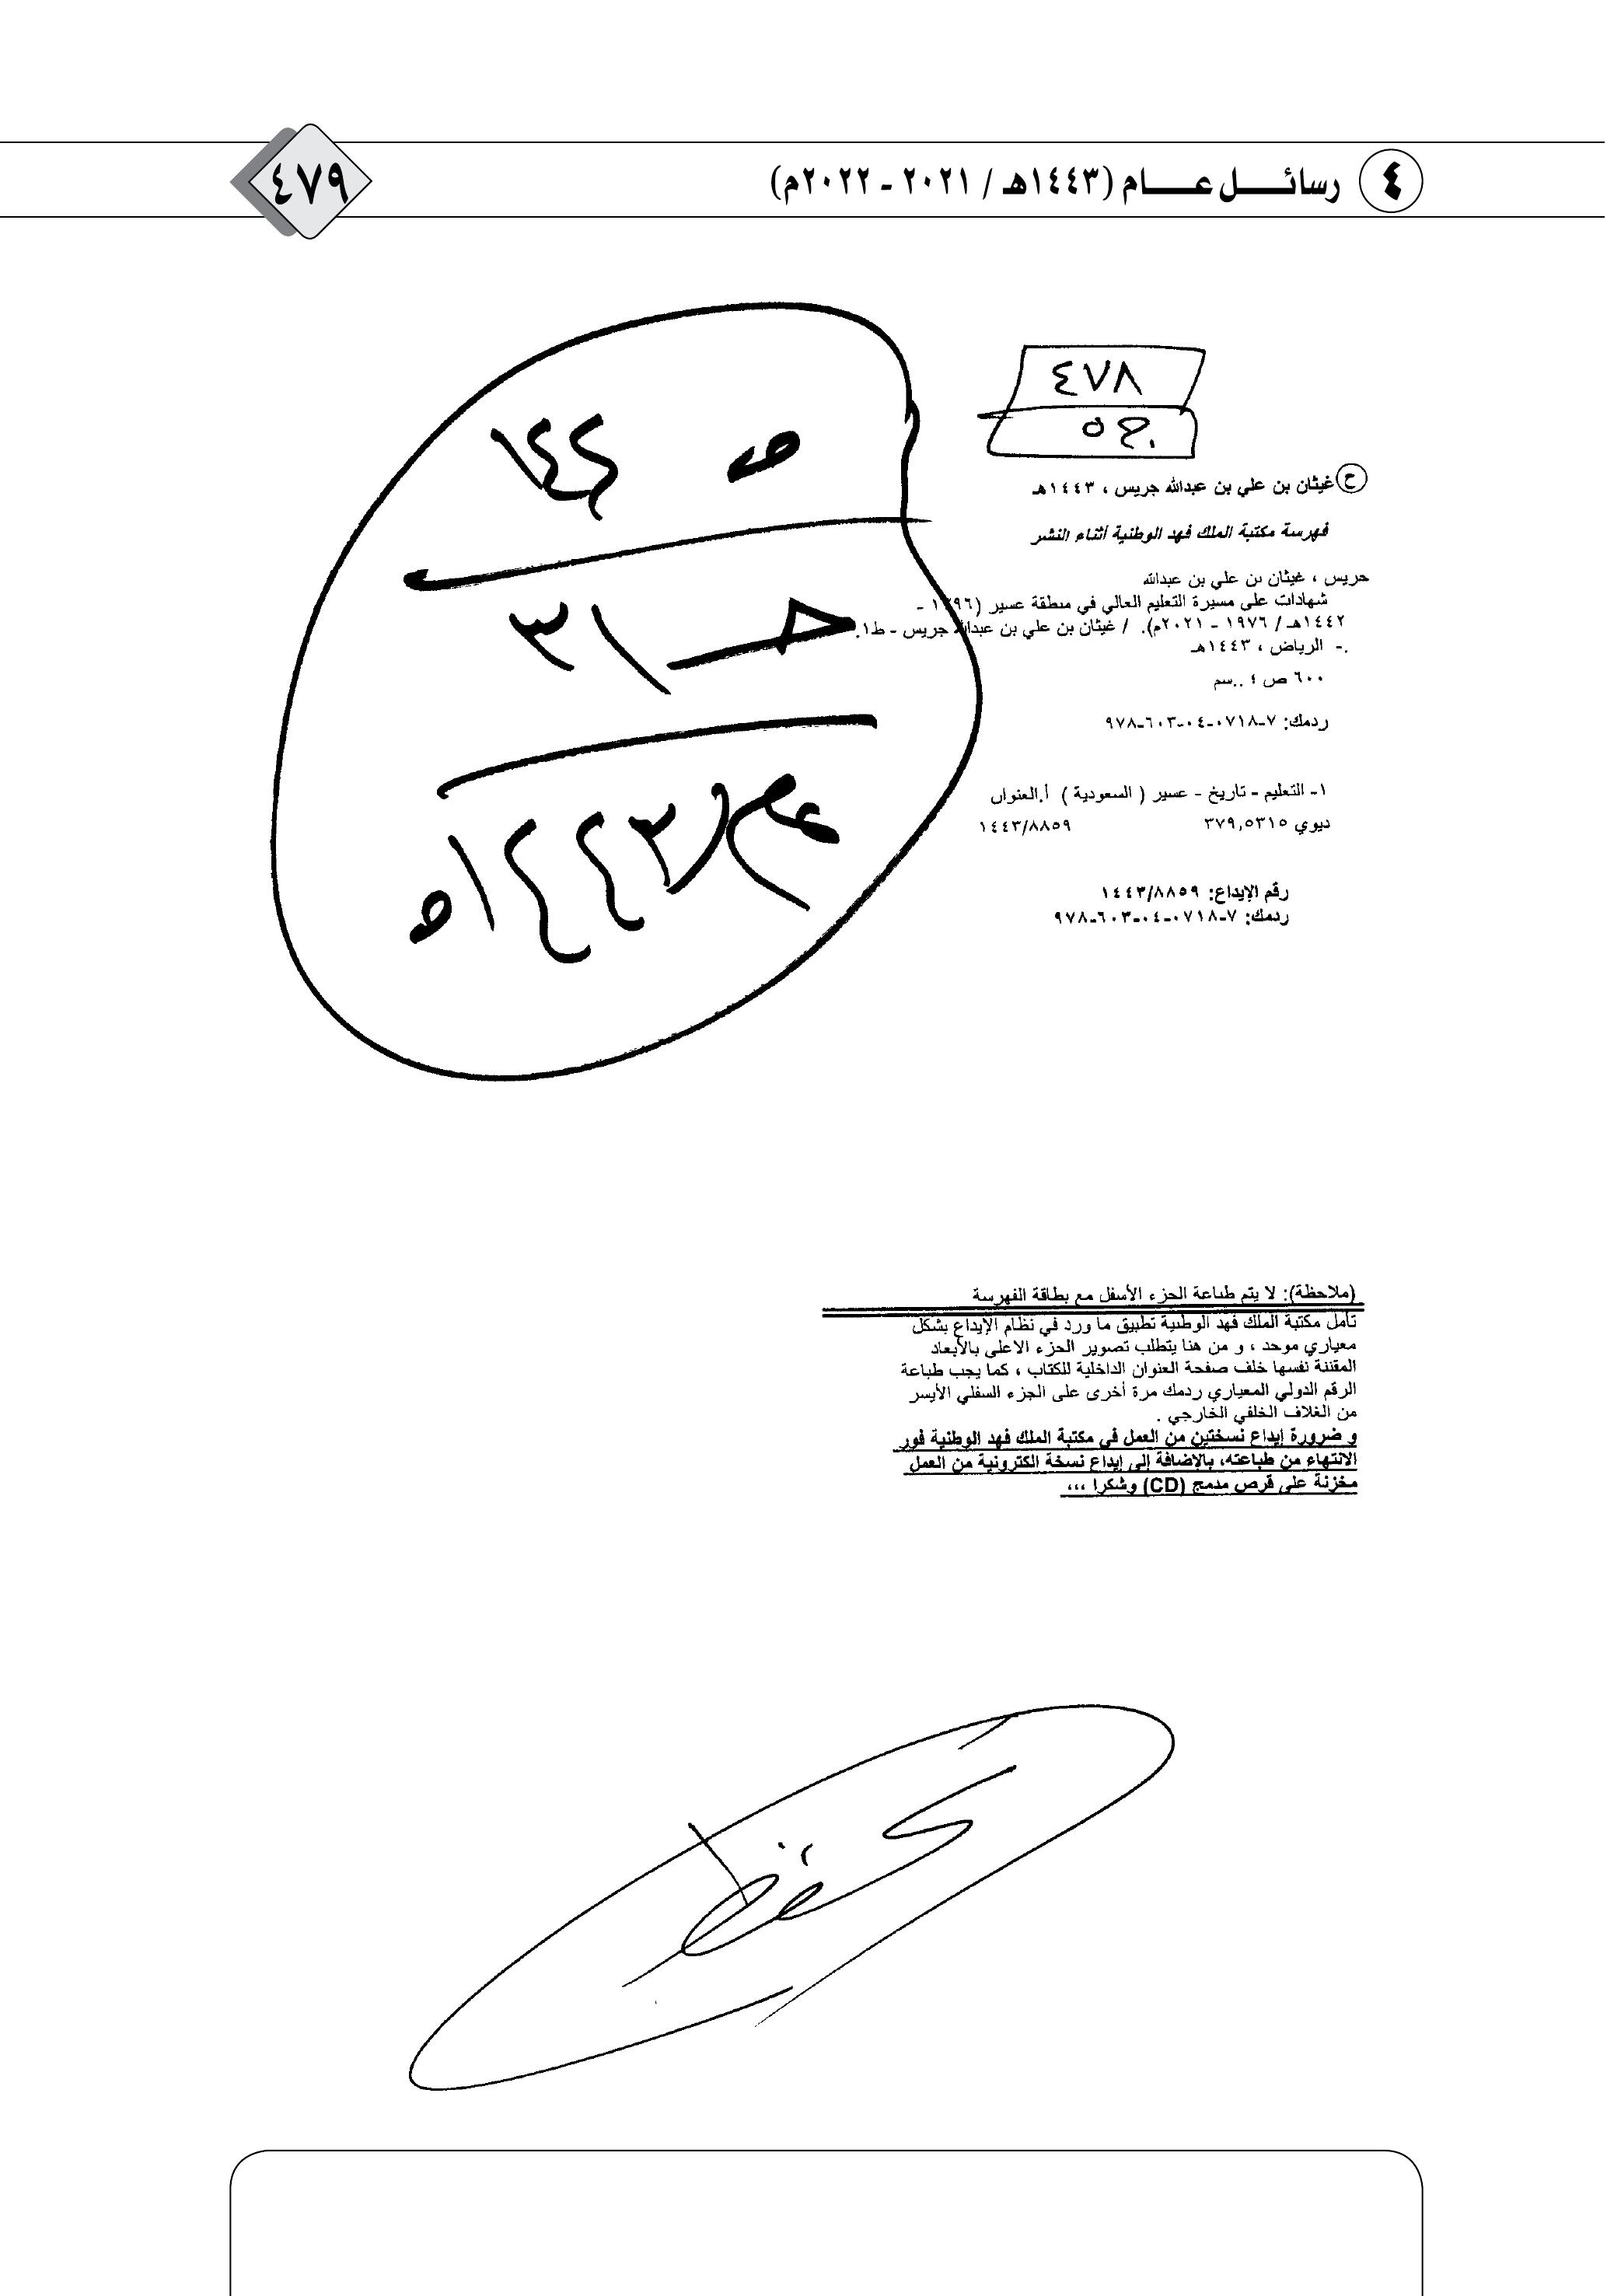 ٤ رسائل عام (١٤٤٣هـ / ٢٠٢١ - ٢٠٢٢م)
٤٧٩
٤٧٨
ح غيثان بن علي بن عبدالله جريس ، ١٤٤٣هـ
فهرسة مكتبة الملك فهد الوطنية أثناء النشر
جريس ، غيثان بن علي بن عبدالله
شهادات على مسيرة التعليم العالي في منطقة عسير (١٣٩٦ -
١٤٤٢هـ / ١٩٧٦ - ٢٠٢١م). / غيثان بن علي بن عبدالله جريس - ط١.
.- الرياض ، ١٤٤٣هـ
٦٠٠ ص ٤ ..سم
ردمك: ٧-٠٧١٨-٠٤-٦٠٣-٩٧٨
١- التعليم - تاريخ - عسير ( السعودية ) أ.العنوان
ديوي ٣٧٩,٥٣١٥ ١٤٤٣/٨٨٥٩
رقم الإيداع: ١٤٤٣/٨٨٥٩
ردمك: ٧-٠٧١٨-٠٤-٦٠٣-٩٧٨
ص ١٤٤
ح ٣١
عام ١٤٤٣هـ
(ملاحظة): لا يتم طباعة الجزء الأسفل مع بطاقة الفهرسة
تأمل مكتبة الملك فهد الوطنية تطبيق ما ورد في نظام الإيداع بشكل
معياري موحد ، و من هنا يتطلب تصوير الجزء الاعلى بالأبعاد
المقننة نفسها خلف صفحة العنوان الداخلية للكتاب ، كما يجب طباعة
الرقم الدولي المعياري ردمك مرة أخرى على الجزء السفلي الأيسر
من الغلاف الخلفي الخارجي .
و ضرورة إيداع نسختين من العمل في مكتبة الملك فهد الوطنية فور
الانتهاء من طباعته، بالإضافة إلى إيداع نسخة الكترونية من العمل
مخزنة على قرص مدمج (CD) وشكرا ،،،